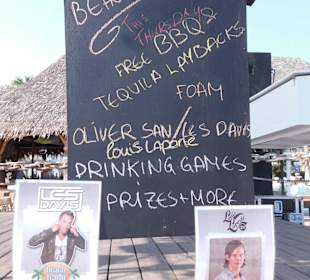 BEAC
THIS
THURSDAYS
FREE BBQ
TEQUILA LAYBACKS
FOAM
OLIVER SAN/LES DAVIS
Louis Laporte
DRINKING GAMES
PRIZES + MORE
LES
DAVIS